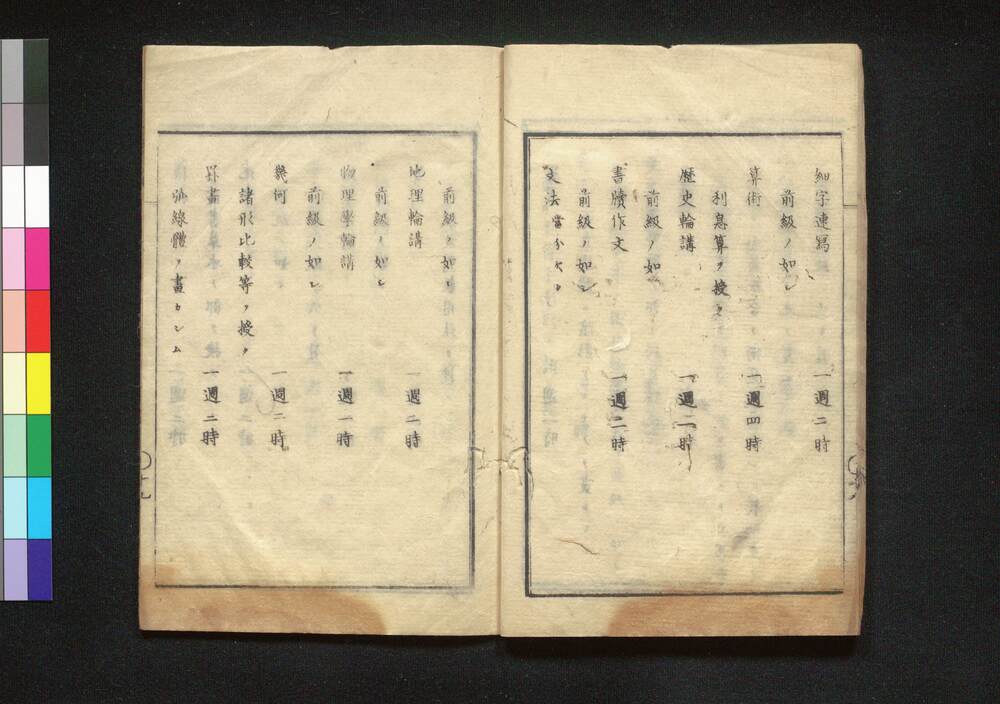 細字速寫 一週二時
前級ノ如シ
算術 一週四時
利息算ヲ授ク
歴史輪講 一週二時
前級ノ如シ
書牘作文 一週二時
前級ノ如シ
文法當分欠ク
前級ノ如シ
地理輪講 一週二時
前級ノ如シ
物理學輪講 一週一時
前級ノ如シ
幾何 一週二時
諸形比較等ヲ授ク
罫畵 一週二時
線體ヲ畫カシム